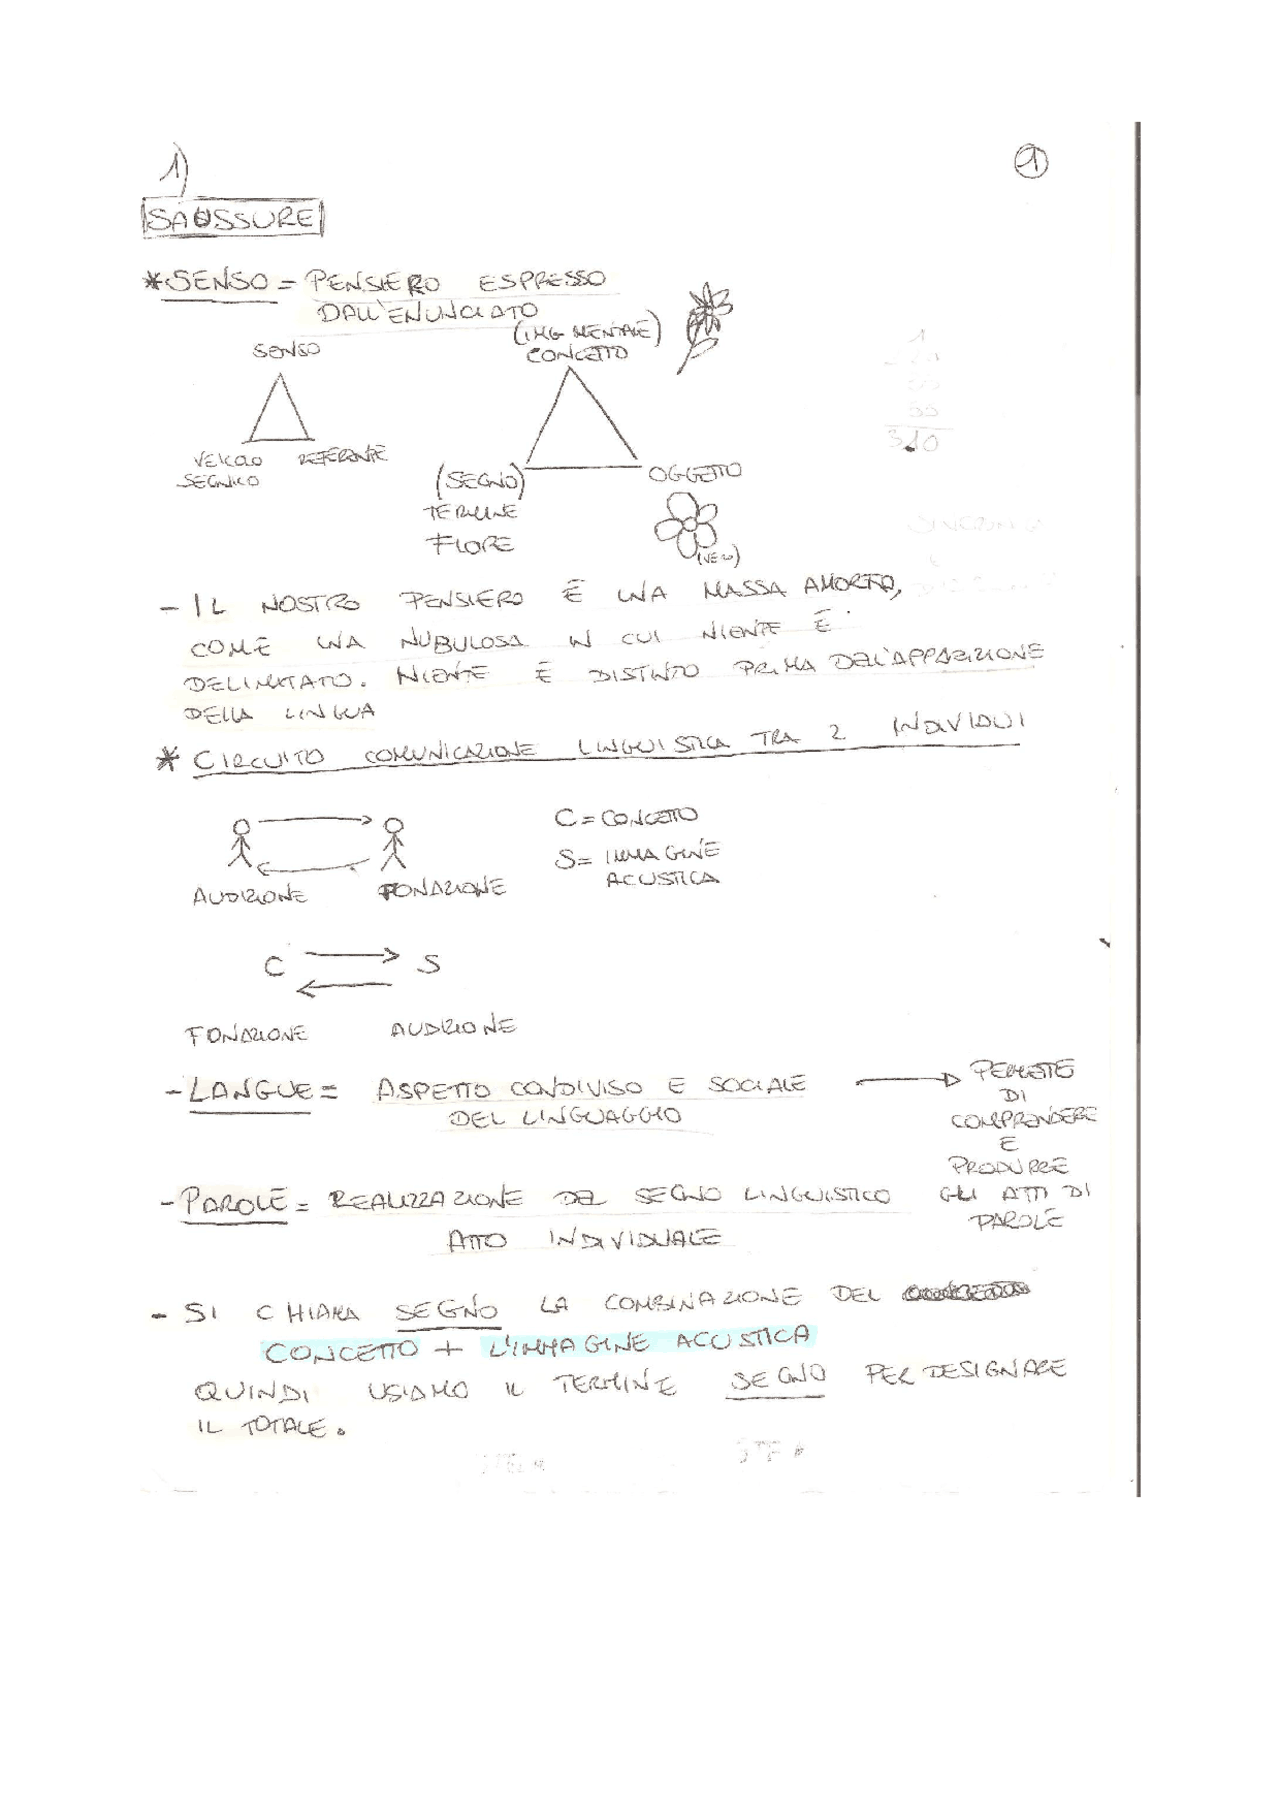 1)
1
SAUSSURE
*SENSO = PENSIERO ESPRESSO
DALL'ENUNCIATO
SENSO
(IMG MENTALE)
CONCETTO
VEICOLO
SEGNICO
REFERENTE
(SEGNO)
TERMINE
FIORE
OGGETTO
(VERO)
- IL NOSTRO PENSIERO È UNA MASSA AMORFA,
COME UNA NUBULOSA IN CUI NIENTE È
DELIMITATO. NIENTE È DISTINTO PRIMA DELL'APPARIZIONE
DELLA LINGUA
* CIRCUITO COMUNICAZIONE LINGUISTICA TRA 2 INDIVIDUI
C = CONCETTO
S = IMMAGINE
ACUSTICA
AUDIZIONE FONAZIONE
C S
FONAZIONE AUDIZIONE
- LANGUE = ASPETTO CONDIVISO E SOCIALE
DEL LINGUAGGIO
PERMETTE
DI
COMPRENDERE
E
PRODURRE
GLI ATTI DI
PAROLE
- PAROLE = REALIZZAZIONE DEL SEGNO LINGUISTICO
ATTO INDIVIDUALE
- SI CHIAMA SEGNO LA COMBINAZIONE DEL
CONCETTO + L'IMMAGINE ACUSTICA
QUINDI USIAMO IL TERMINE SEGNO PER DESIGNARE
IL TOTALE.